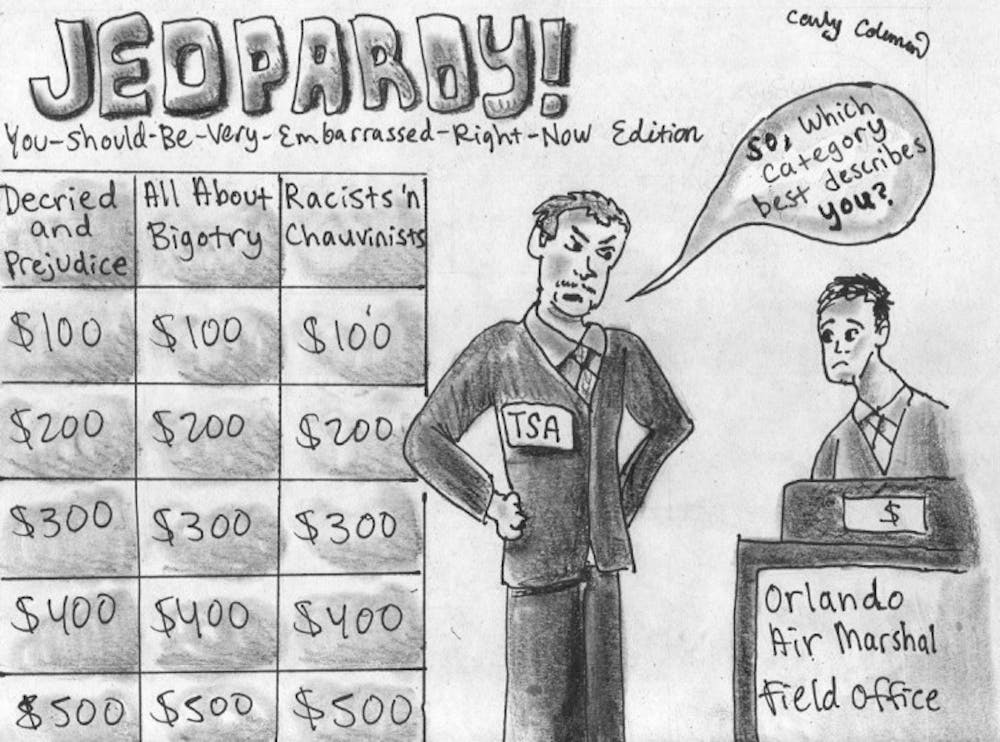 Carly Coleman
JEOPARDY!
You-Should-Be-Very-Embarrassed-Right-Now Edition
So, Which
category
best describes
you?
Decried
and
Prejudice
All About
Bigotry
Racists 'n
Chauvinists
$100 $100 $100
$200 $200 $200
$300 $300 $300
$400 $400 $400
$500 $500 $500
TSA
$
Orlando
Air Marshal
Field Office